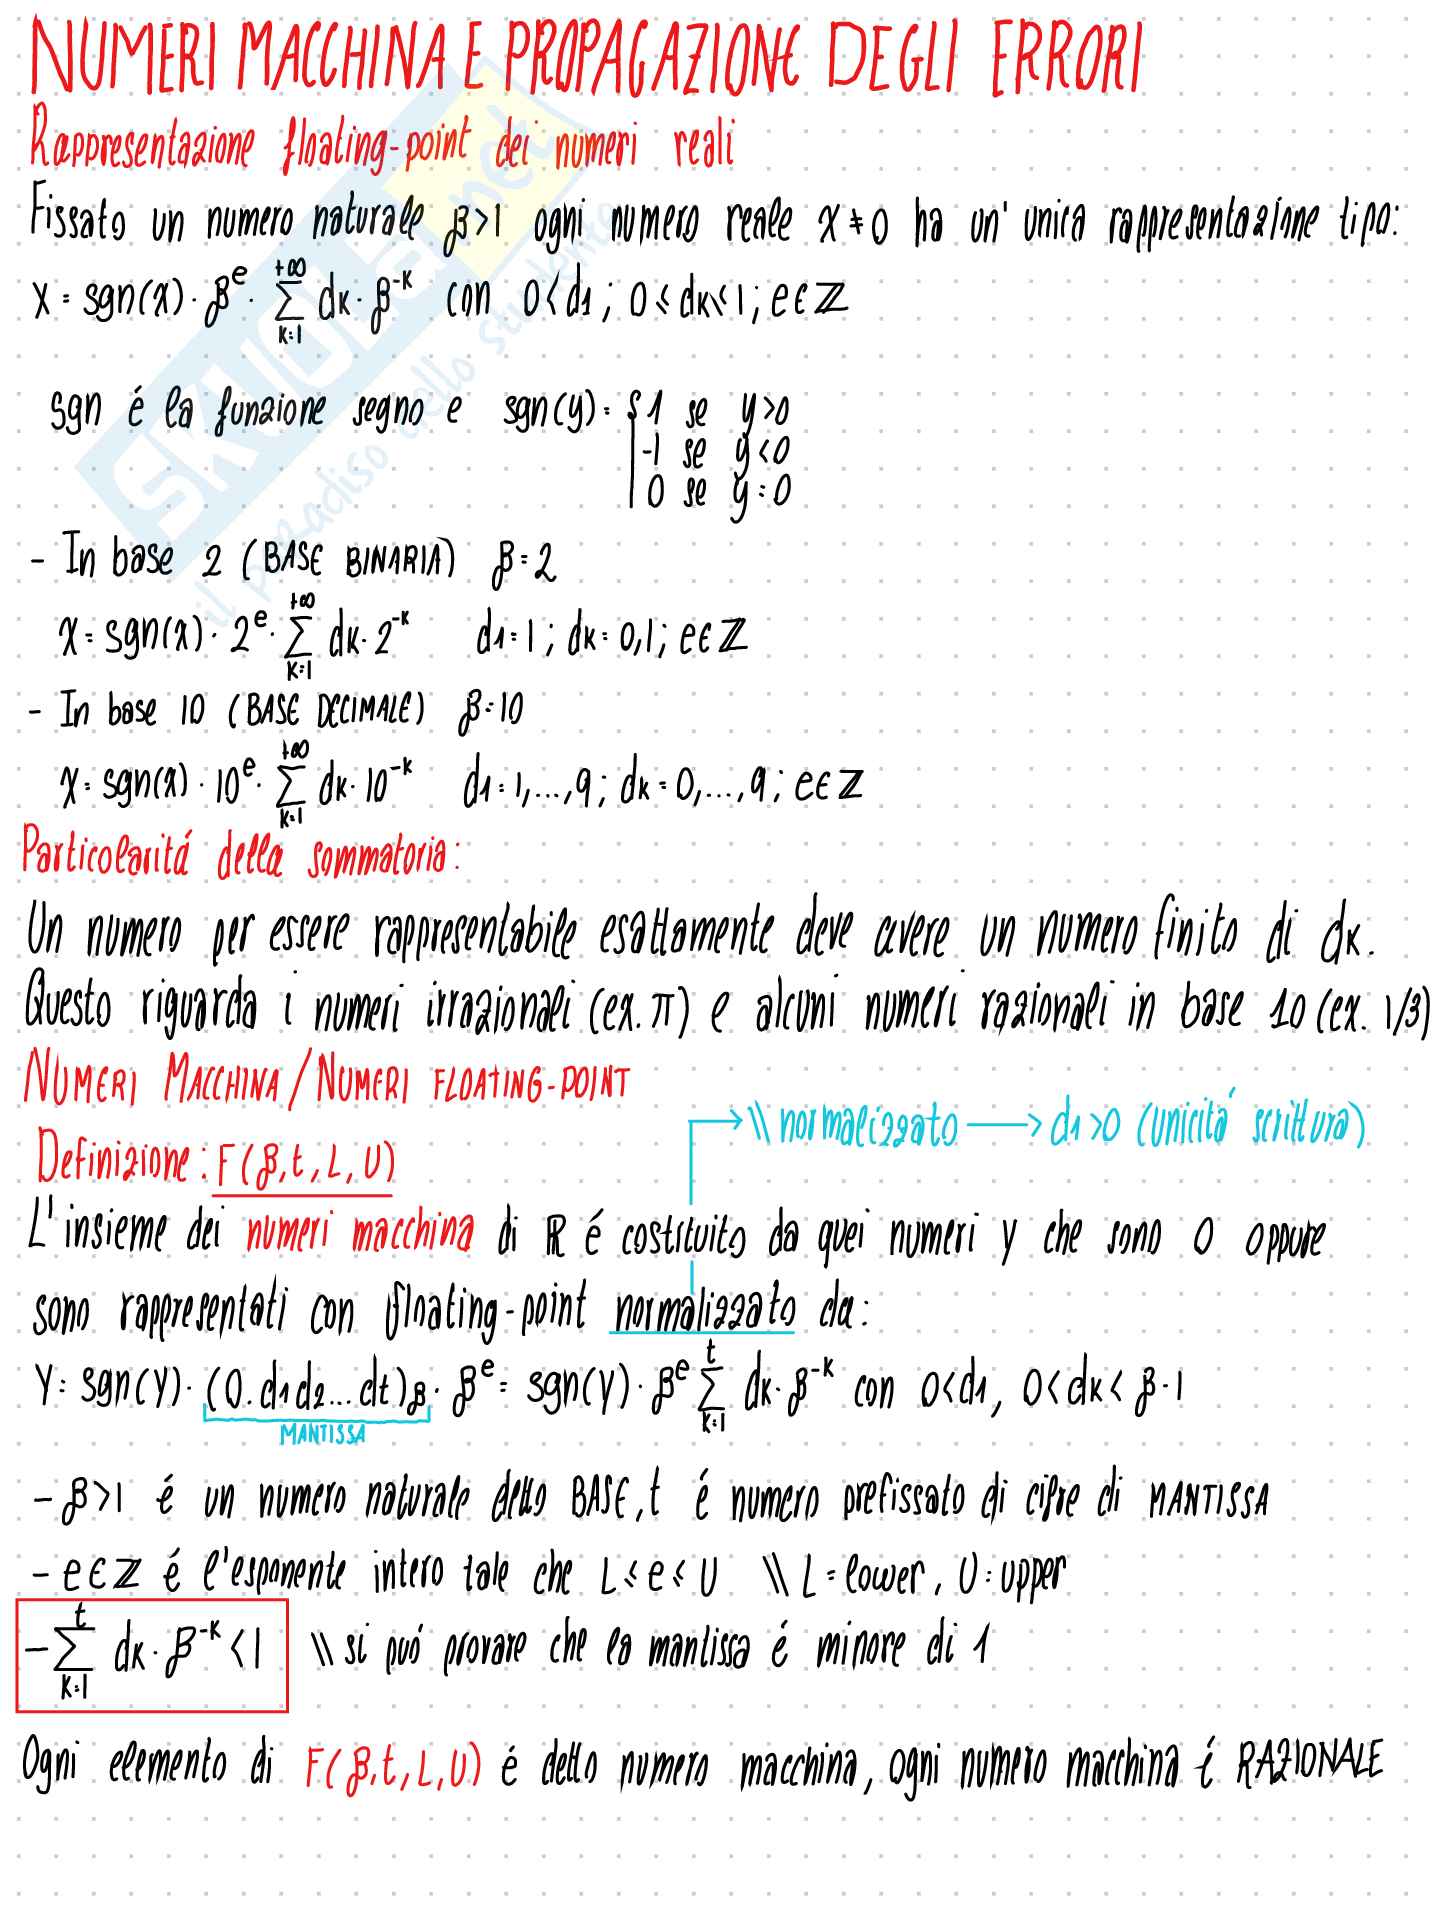 NUMERI MACCHINA E PROPAGAZIONE DEGLI ERRORI
Rappresentazione floating-point dei numeri reali
Fissato un numero naturale β>1 ogni numero reale x≠0 ha un' unica rappresentazione tipo:
x = sgn(x) · β^e · ∑_{k=1}^{+∞} dk · β^{-k} con 0<d1 ; 0≤dk≤1 ; e∈ℤ
sgn é la funzione segno e sgn(y) = { 1 se y>0
-1 se y<0
0 se y=0
- In base 2 (BASE BINARIA) β=2
x = sgn(x) · 2^e · ∑_{k=1}^{+∞} dk · 2^{-k} d1=1 ; dk=0,1 ; e∈ℤ
- In base 10 (BASE DECIMALE) β=10
x = sgn(x) · 10^e · ∑_{k=1}^{+∞} dk · 10^{-k} d1=1,...,9 ; dk=0,...,9 ; e∈ℤ
Particolaritá della sommatoria:
Un numero per essere rappresentabile esattamente deve avere un numero finito di dk.
Questo riguarda i numeri irrazionali (ex. π) e alcuni numeri razionali in base 10 (ex. 1/3)
NUMERI MACCHINA/NUMERI FLOATING-POINT
\\ normalizzato → d1>0 (unicitá scrittura)
Definizione: F(β,t,L,U)
L'insieme dei numeri macchina di ℝ é costituito da quei numeri y che sono 0 oppure
sono rappresentati con floating-point normalizzato da:
Y = sgn(y) · (0.d1d2...dt)β · β^e = sgn(y) · β^e ∑_{k=1}^{t} dk · β^{-k} con 0<d1, 0<dk<β-1
MANTISSA
- β>1 é un numero naturale detto BASE, t é numero prefissato di cifre di MANTISSA
- e∈ℤ é l'esponente intero tale che L≤e≤U \\ L=lower, U=upper
- ∑_{k=1}^{t} dk · β^{-k} <1 \\ si puó provare che la mantissa é minore di 1
Ogni elemento di F(β,t,L,U) é detto numero macchina, ogni numero macchina é RAZIONALE
SKUOLA.net
il paradiso dello studente